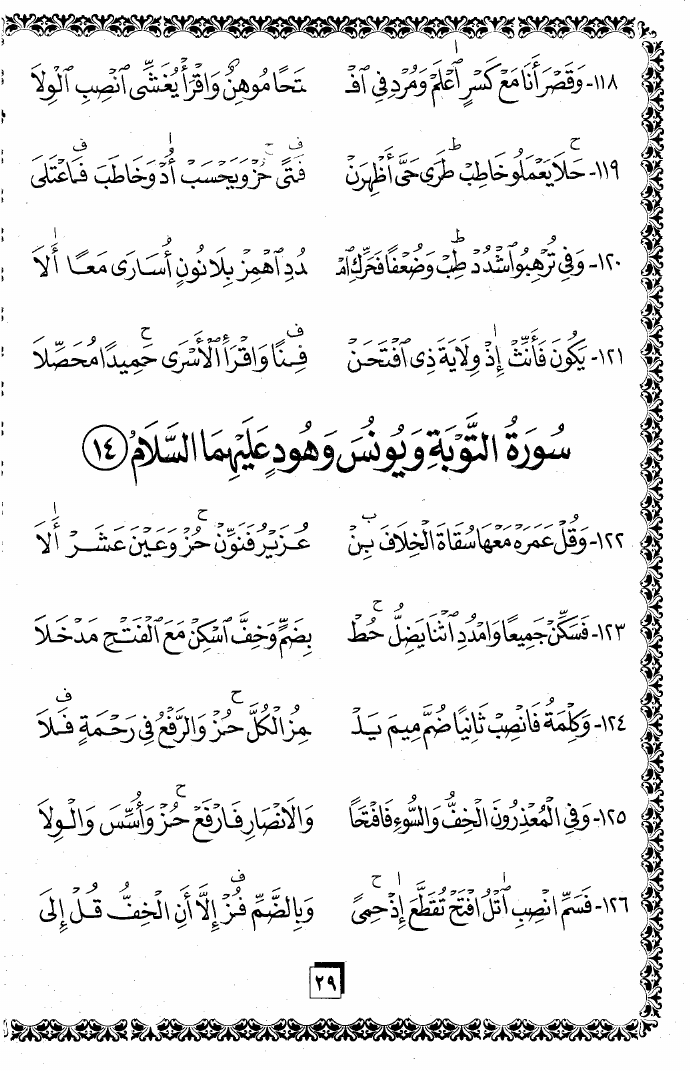 ١١٨- وَقَصْرَ أَنَا مَعْ كَسْرِ اعْلَمْ وَمُرْدِفِي افْـ تَحًا مُوهِنُ وَاقْرَأْ يُغْشِي انْصِبِ الْوِلَا
١١٩- حَلَا يَعْمَلُو خَاطِبْ طَرَى حَيَّ أَظْهِرَنْ فَتًى حُزْ وَيَحْسَبْ أُدْ وَخَاطَبَ فَاعْتَلَى
١٢٠- وَفِي تُرْهِبُوا اشْدُدْ طِبْ وَضُعْفًا فَحَرِّكِ امْـ دُدِ اهْمِزْ بِلَا نُونٍ أُسَارَى مَعًا أَلَا
١٢١- يَكُونَ فَأَنِّثْ إِذْ وِلَايَةَ ذِي افْتَحَنْ فِنًا وَاقْرَأِ الْأَسْرَى حَمِيدًا مُحَصِّلَا
سُورَةُ التَّوْبَةِ وَيُونُسَ وَهُودٍ عَلَيْهِمَا السَّلَامُ ١٤
١٢٢- وَقُلْ عَمَرَهْ مَعْهَا سُقَاةَ الْخِلَافَ بِنْ عُزَيْرُ فَنَوِّنْ حُزْ وَعَيْنَ عَشَرْ أَلَا
١٢٣- فَسَكِّنْ جَمِيعًا وَامْدُدِ اثْنَا يَضِلُّ حُطْ بِضَمٍّ وَخِفَّ اسْكِنْ مَعَ الْفَتْحِ مَدْخَلَا
١٢٤- وَكِلْمَةُ فَانْصِبْ ثَانِيًا ضُمَّ مِيمَ يَلْـ ـمِزُ الْكُلَّ حُزْ وَالرَّفْعُ فِي رَحْمَةٍ فَلَا
١٢٥- وَفِي الْمُعْذِرُونَ الْخِفُّ وَالسُّوءِ فَافْتَحًا وَالَانْصَارِ فَارْفَعْ حُزْ وَأُسِّسَ وَالْوِلَا
١٢٦- فَسَمِّ انْصِبِ اتْلُ افْتَحْ تَقَطَّعَ إِذْ حِمًى وَبِالضَّمِّ فُزْ إِلَّا أَنِ الْخِفُّ قُلْ إِلَى
٢٩